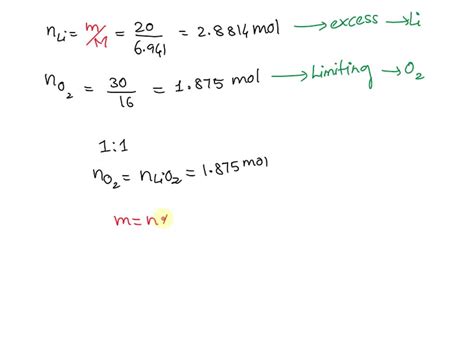 nLi = m/M = 20/6.941 = 2.8814 mol → excess → Li
nO2 = 30/16 = 1.875 mol → Limiting → O2
1:1
nO2 = nLiO2 = 1.875 mol
m=n×